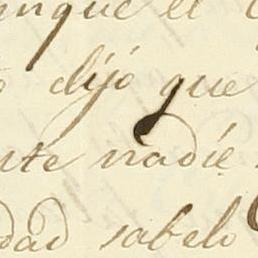 unque el
dijo que
nte nadie
dad sabelo